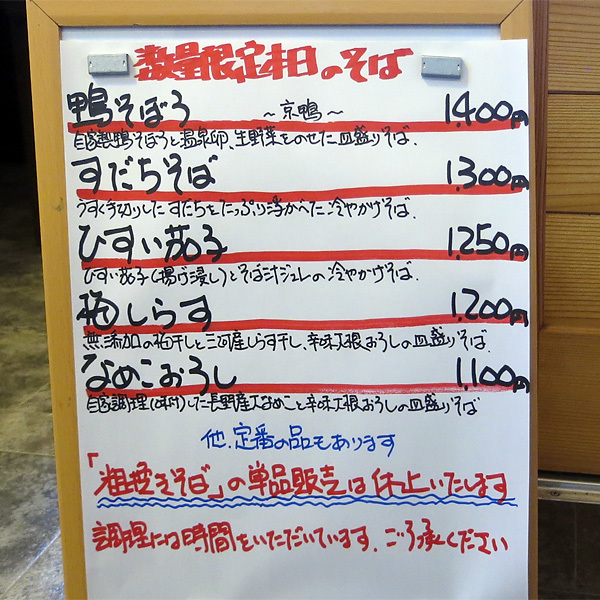 数量限定本日のそば
鴨そぼろ ～京鴨～ 1,400円
自家製鴨そぼろと温泉卵、生野菜をのせた皿盛りそば.
すだちそば 1,300円
うすく手切りしたすだちをたっぷり浮かべた冷やかけそば.
ひすい茄子 1,250円
ひすい茄子(揚げ浸し)とそば汁ジュレの冷やかけそば.
梅しらす 1,200円
無添加の梅干しと三河産しらす干し、辛味大根おろしの皿盛りそば
なめこおろし 1,100円
自家調理(味付)した長野産大なめこと辛味大根おろしの皿盛りそば
他、定番の品もあります
「粗挽きそば」の単品販売は休止いたします
調理には時間をいただいています、ご了承ください